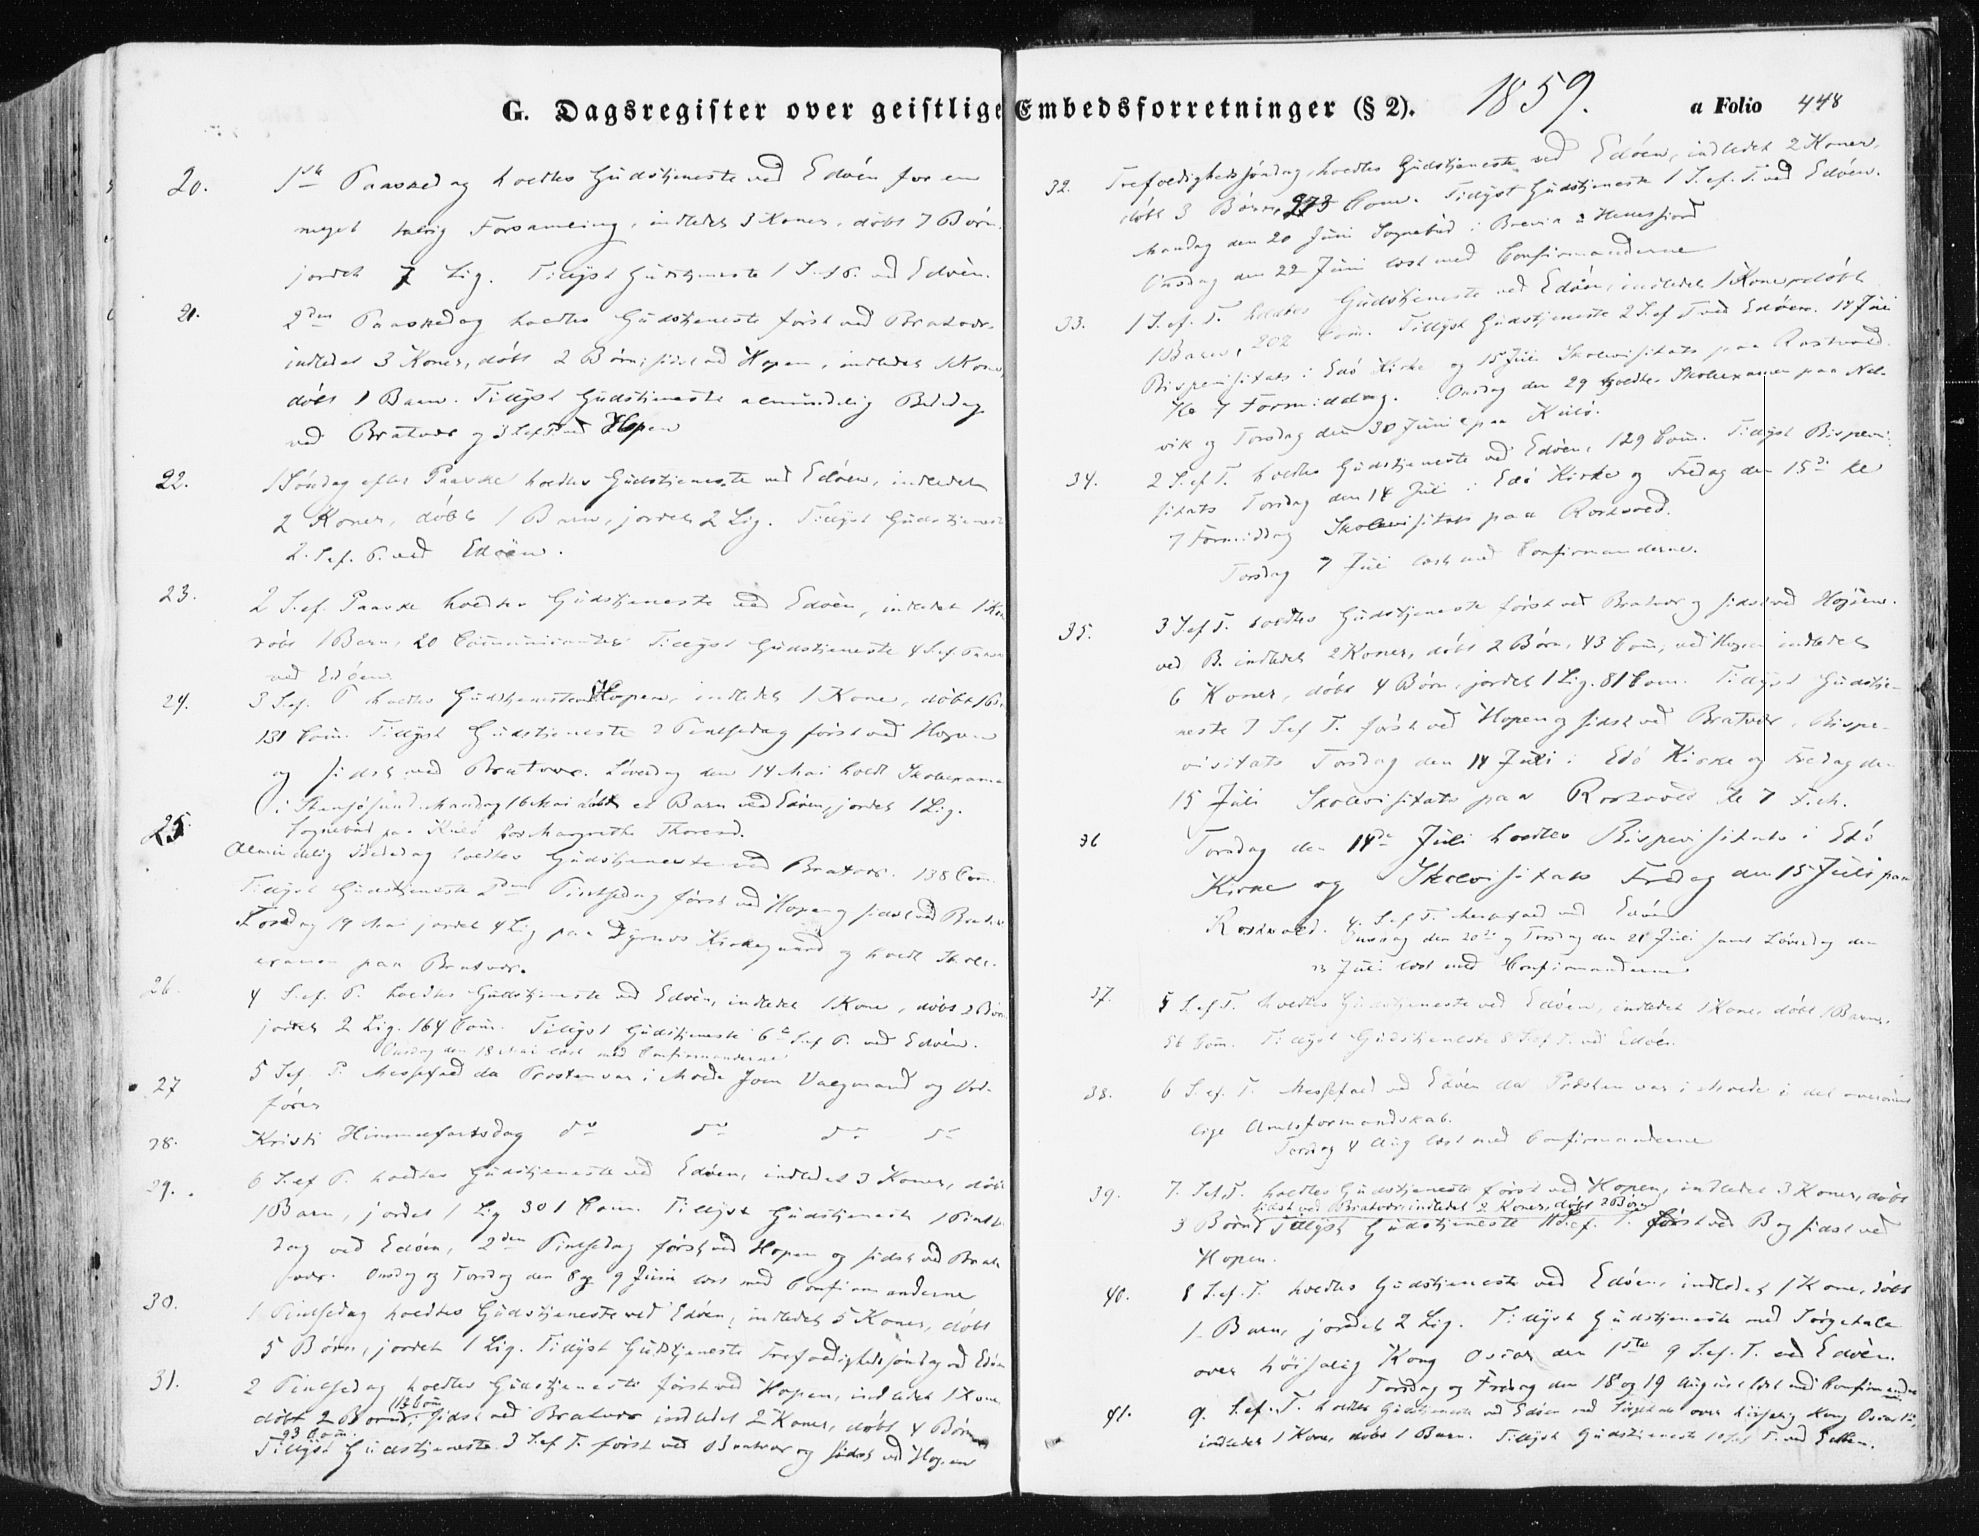 G. Dagsregister over geistlige Embedsforretninger (§ 2). 1859. a Folio 448
20. 1ste Paaskedag holdtes Gudstjeneste ved Edøen for en
meget talrig Forsamling, indledet 3 Koner, døbt 7 Børn,
jordet 7 Lig. Tillyst Gudstjeneste 1 S. ef P. ved Edøen.
21. 2den Paaskedag holdtes Gudstjeneste først ved Bratvær,
indledet 3 Koner, døbt 2 Børn; sidst ved Hopen, indledet 1 Kone,
døbt 1 Barn. Tillyst Gudstjeneste almindelig Bededag
ved Bratvær og 3 S. ef P. ved Hopen
22. 1 Søndag efter Paaske holdtes Gudstjeneste ved Edøen, indledet
2 Koner, døbt 1 Barn, jordet 2 Lig. Tillyst Gudstjeneste
2. S. ef. P. ved Edøen.
23. 2 S. ef. Paaske holdtes Gudstjeneste ved Edøen, indledet 1 Kone
døbt 1 Barn, 20 Communicanter. Tillyst Gudstjeneste 4 S. ef. Paaske
ved Edøen.
24. 3 S. ef. P holdtes Gudstjeneste ved Hopen, indledet 1 Kone, døbt 1 B.
131 Com. Tillyst Gudstjeneste 2 Pintsedag først ved Hopen
og sidst ved Bratvær. Løverdag den 14 Mai holdt Skoleexamen
i Stensøsund. Mandag 16 Mai døbt et Barn ved Edøen, jordet 1 Lig.
Sognebud paa Kulø hos Margrethe Thorsd.
25 Almindelig Bededag holdtes Gudstjeneste ved Bratvær. 138 Com.
Tillyst Gudstjeneste 2den Pintsedag først ved Hopen og sidst ved Bratvær
Torsdag 19 Mai jordet 4 Lig paa Dyrnes Kirkegaard og holdt Skole-
examen paa Bratvær.
26. 4 S. ef. P. holdtes Gudstjeneste ved Edøen, indledet 1 Kone, døbt 2 Børn
jordet 2 Lig. 164 Com. Tillyst Gudstjeneste 6te S. ef P. ved Edøen.
Onsdag den 18 Mai læst med Confirmanderne
27 5 S. ef. P. Messefald da Prosten var i Møde som Valgmand og Ord-
fører
28. Kristi Himmelfartsdag do do do do
29. 6 S. ef P. holdtes Gudstjeneste ved Edøen, indledet 3 Koner, døbt
1 Barn, jordet 1 Lig 301 Com. Tillyst Gudstjeneste 1 Pintse-
dag ved Edøen, 2den Pintsedag først ved Hopen og sidst ved Brat-
vær. Onsdag og Torsdag den 8 og 9 Juni læst med Confirmanderne
30. 1 Pintsedag holdtes Gudstjeneste ved Edøen, indledet 5 Koner, døbt
5 Børn, jordet 1 Lig. Tillyst Gudstjeneste Trefoldighedssøndag ved Edøen
31. 2 Pintsedag holdtes Gudstjeneste først ved Hopen, indledet 1 Kone,
døbt 2 Børn, 113 Com; sidst ved Bratvær indledet 2 Koner, døbt 4 Børn
93 Com.
Tillyst Gudstjeneste 3 S. ef T. først ved Bratvær og sidst ved Hopen
32. Trefoldighedssøndag holdtes Gudstjeneste ved Edøen, indledet 2 Koner,
døbt 3 Børn, 273 Com. Tillyst Gudstjeneste 1 S. ef. T. ved Edøen.
Mandag den 20 Juni Sognebud i
Onsdag den 22 Juni læst med Confirmanderne
33. 1 S. ef. T. holdtes Gudstjeneste ved Edøen, indledet 1 Kone, døbt
1 Barn, 202 Com. Tillyst Gudstjeneste 2 S. ef T ved Edøen. 14 Juli
Bispevisitats i Edø Kirke og 15 Juli Skolevisitats paa Rostvold
Kl 7 Formiddag. Onsdag den 29 holdtes Skoleexamen paa Nel-
vik og Torsdag den 30 Juni paa Kulø.
34. 2 S. ef T. holdtes Gudstjeneste ved Edøen, 129 Com. Tillyst Bispevi-
sitats Torsdag den 14 Juli i Edø Kirke og Fredag den 15de Kl
7 Formiddag Skolevisitats paa Rostvold.
Torsdag 7 Juli læst med Confirmanderne.
35. 3 S ef T. holdtes Gudstjeneste først ved Bratvær og sidst ved Hopen.
ved B. indledet 2 Koner, døbt 2 Børn, 43 Com; ved Hopen indledet
6 Koner, døbt 4 Børn, jordet 1 Lig. 81 Com. Tillyst Gudstje-
neste 7 S ef T. først ved Hopen og sidst ved Bratvær. Bispe-
visitats Torsdag den 14 Juli i Edø Kirke og Fredag den
15 Juli Skolevisitats paa Rostvold Kl 7 F.
36 Torsdag den 14de Juli holdtes Bispevisitats i Edø
Kirke og Skolevisitats Fredag den 15 Juli paa
Rostvold. 4. S ef T. Messefald ved Edøen
Onsdag den 20de og Torsdag den 21 Juli samt Løverdag den
23 Juli læst med Confirmanderne
37. 5 S. ef T. holdtes Gudstjeneste ved Edøen, indledet 1 Kone, døbt 1 Barn,
56 Com. Tillyst Gudstjeneste 8 S ef T. ved Edøen.
38. 6 S. ef. T. Messefald ved Edøen da Prosten var i Møde i det overordent-
lige Amtsformandskab.
Torsdag 4 Aug læst med Confirmanderne
39. 7. S ef T. holdtes Gudstjeneste først ved Hopen, indledet 3 Koner, døbt
sidst ved Bratvær, indledet 2 Koner, døbt 2 Børn
3 Børn. Tillyst Gudstjeneste S. ef. T. først ved B og sidst ved
Hopen.
40. 8 S. ef. T. holdtes Gudstjeneste ved Edøen, indledet 1 Kone, døbt
1 Barn, jordet 2 Lig. Tillyst Gudstjeneste med Sørgetale
over høisalig Kong Oscar den 1ste 9 S. ef. T. ved Edøen.
Torsdag og Fredag den 18 og 19 August læst med Confirmanderne
41. 9. S. ef. T. holdtes Gudstjeneste ved Edøen med Sørgetale over høisalig Kong Oscar 1ste,
indledet 1 Kone, døbt 1 Barn. Tillyst Gudstjeneste 10 S ef T. ved Edøen.